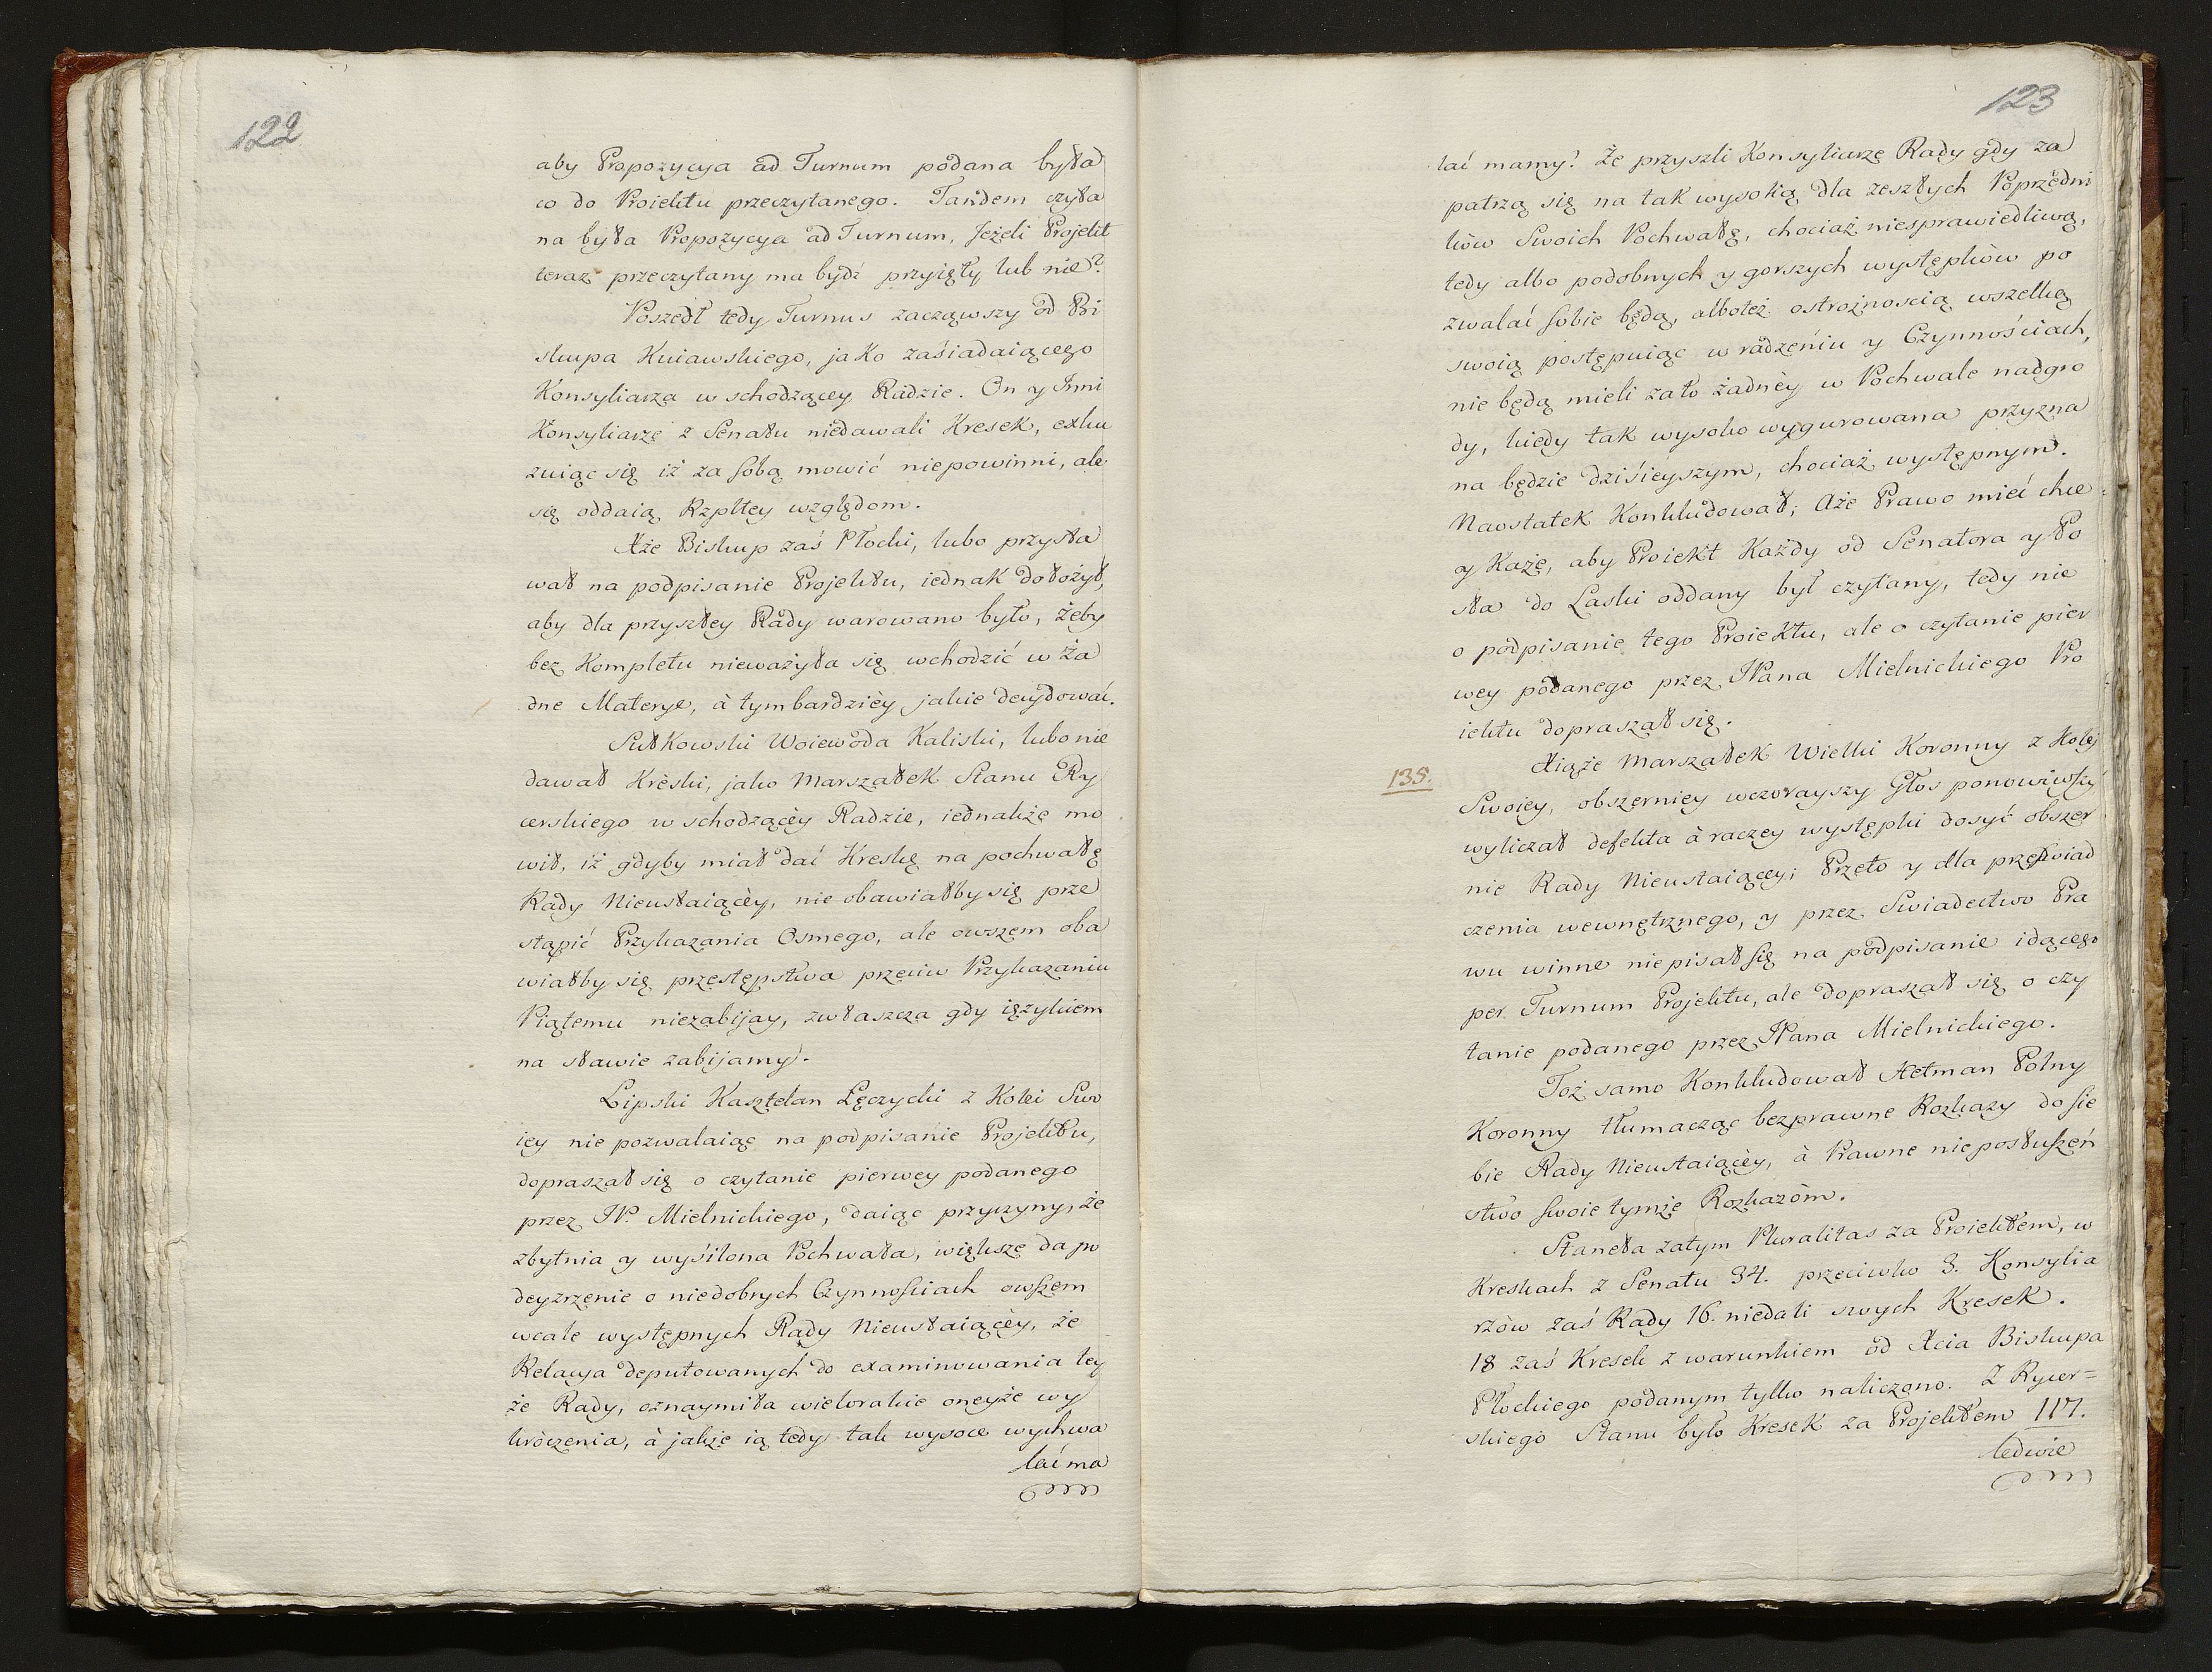 122
aby Propozycya ad Turnum podana była
co do Proiektu przeczytanego. Tandem czyta
na była Propozycya ad Turnum, Jeżeli Projekt
teraz przeczytany ma bydź przyięty lub nie?
Poszedł tedy Turnus zacząwszy od Bi
skupa Kuiawskiego, jako zasiadaiącego
Konsyliarza w schodzącey Radzie. On y Inni
Konsyliarze z Senatu niedawali Kresek, exku
zuiąc się iż za sobą mowić niepowinni, ale
się oddaią Rzpltey względom.
Xże Biskup zaś Płocki, lubo przysta
wał na podpisanie Projektu, iednak dołożył,
aby dla przyszłey Rady warowano było, żeby
bez Kompletu nieważyła się wchodzić w ża
dne Materye, à tymbardzièy jakie decydować.
Sułkowski Woiewoda Kaliski, lubo nie
dawał Krèski, jako Marszałek Stanu Ry
cerskiego w schodzącèy Radzie, iednakże mo
wił, iż gdyby miał dać Kreskę na pochwałę
Rady Nieustaiącèy, nie obawiałby się prze
stąpić Przykazania Osmego, ale owszem oba
wiałby się przestępstwa przeciw Przykazaniu
Piątemu niezabijay, zwłaszcza gdy ięzykiem
na sławie zabijamy.
Lipski Kasztelan Łęczycki z Kolei Swo
iey nie pozwalaiąc na podpisanie Projektu,
dopraszał się o czytanie pierwey podanego
przez JP. Mielnickiego, daiąc przyczyny, że
zbytnia y wysilona Pochwała, większe da po
deyzrzenie o niedobrych Czynnościach owszem
wcale występnych Rady Nieustaiącèy, że
Relacya deputowanych do examinowania tey
że Rady, oznaymiła wielorakie oneyże wy
kròczenia, à jakże ią tedy tak wysoce wychwa
laćma
123
lać mamy? Że przyszli Konsyliarze Rady gdy za
patrzą się na tak wysoką dla zeszłych Poprzedni
ków Swoich Pochwałę, chociaż niesprawiedliwą,
tedy albo podobnych y gorszych występków po
zwalać sobie będą, albotéż ostrożnością wszelką
swoią postępuiąc w radzeniu y Czynnościach,
nie będą mieli zato żadnèy w Pochwale nadgro
dy, kiedy tak wysoko wygurowana przyzna
na będzie dzisieyszym, chociaż występnym.
Naostatek Konkludował; Aże Prawo mieć chce
y Każe, aby Proiekt Każdy od Senatora y Po
sła do Laski oddany był czytany, tedy nie
o podpisanie tego Proiektu, ale o czytanie pier
wey podanego przez JPana Mielnickiego Pro
iektu dopraszał się.
135.
Xiąże Marszałek Wielki Koronny z Kolej
Swoiey, obszerniey wczorayszy Głos ponowiwszy
wyliczał defekta à raczey występki dosyć obszer
nie Rady Nieustaiącey; Przeto y dla przeświad
czenia wewnętrznego, y przez Swiadectwo Pra
wu winne niepisał się na podpisanie idącego
per Turnum Projektu, ale dopraszał się o czy
tanie podanego przez JPana Mielnickiego.
Toż samo Konkludował Hetman Polny
Koronny tłumacząc bezprawne Rozkazy do sie
bie Rady Nieustaiącèy, à Prawne nieposłuszeń
stwo swoie tymże Rozkazòm.
Staneła zatym Pluralitas za Proiektem, w
Kreskach z Senatu 34. przeciwko 3. Konsylia
rzòw zaś Rady 16. niedali swych Kresek.
18 zaś Kresek z warunkiem od Xcia Biskupa
Płockiego podanym tylko naliczono. Z Rycer=
skiego Stanu było Kresek za Projektem 117.
ledwie